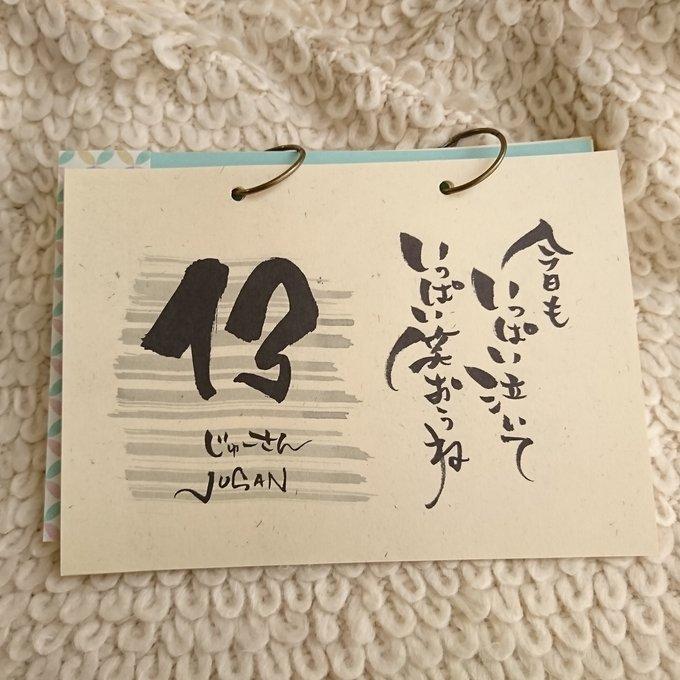 今日も
いっぱい泣いて
いっぱい笑おうね
13
じゅーさん
JUSAN